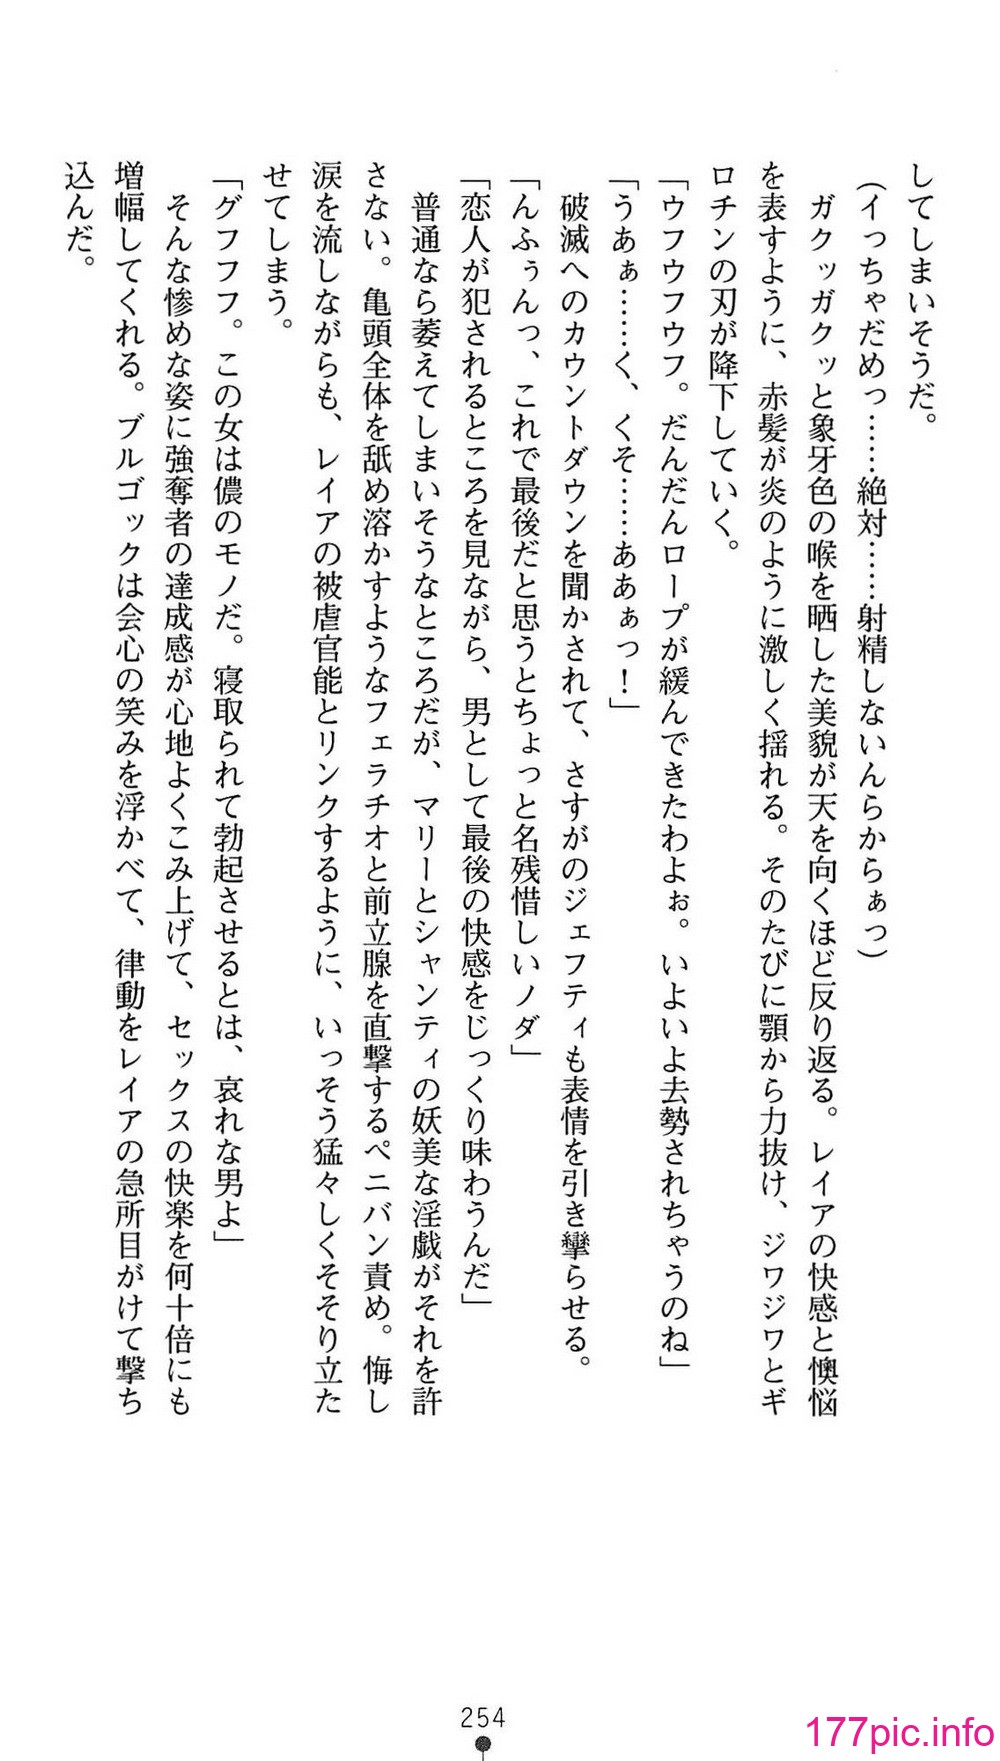 してしまいそうだ。
（イっちゃだめっ……絶対……射精しないんらからぁっ）
　ガクッガクッと象牙色の喉を晒した美貌が天を向くほど反り返る。レイアの快感と懊悩
を表すように、赤髪が炎のように激しく揺れる。そのたびに顎から力抜け、ジワジワとギ
ロチンの刃が降下していく。
「ウフウフウフ。だんだんロープが緩んできたわよぉ。いよいよ去勢されちゃうのね」
「うあぁ……く、くそ……ああぁっ！」
　破滅へのカウントダウンを聞かされて、さすがのジェフティも表情を引き攣らせる。
「んふぅんっ、これで最後だと思うとちょっと名残惜しいノダ」
「恋人が犯されるところを見ながら、男として最後の快感をじっくり味わうんだ」
　普通なら萎えてしまいそうなところだが、マリーとシャンティの妖美な淫戯がそれを許
さない。亀頭全体を舐め溶かすようなフェラチオと前立腺を直撃するペニバン責め。悔し
涙を流しながらも、レイアの被虐官能とリンクするように、いっそう猛々しくそそり立た
せてしまう。
「グフフフ。この女は儂のモノだ。寝取られて勃起させるとは、哀れな男よ」
　そんな惨めな姿に強奪者の達成感が心地よくこみ上げて、セックスの快楽を何十倍にも
増幅してくれる。ブルゴックは会心の笑みを浮かべて、律動をレイアの急所目がけて撃ち
込んだ。
254
177pic.info